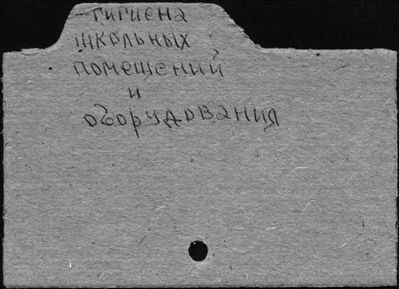 гигиена
школьных
помещений
и
оборудования